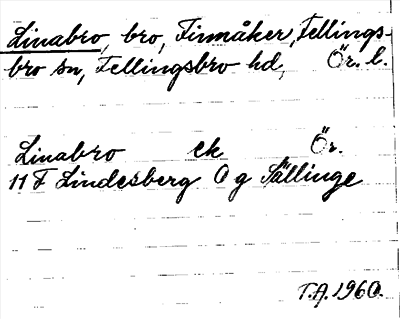 Linabro, bro, Finnåker, Fellings-
bro sn, Fellingsbro hd, Ör. l.
Linabro ek Ör.
11 F Lindesberg O g Sällinge
T.A. 1960.